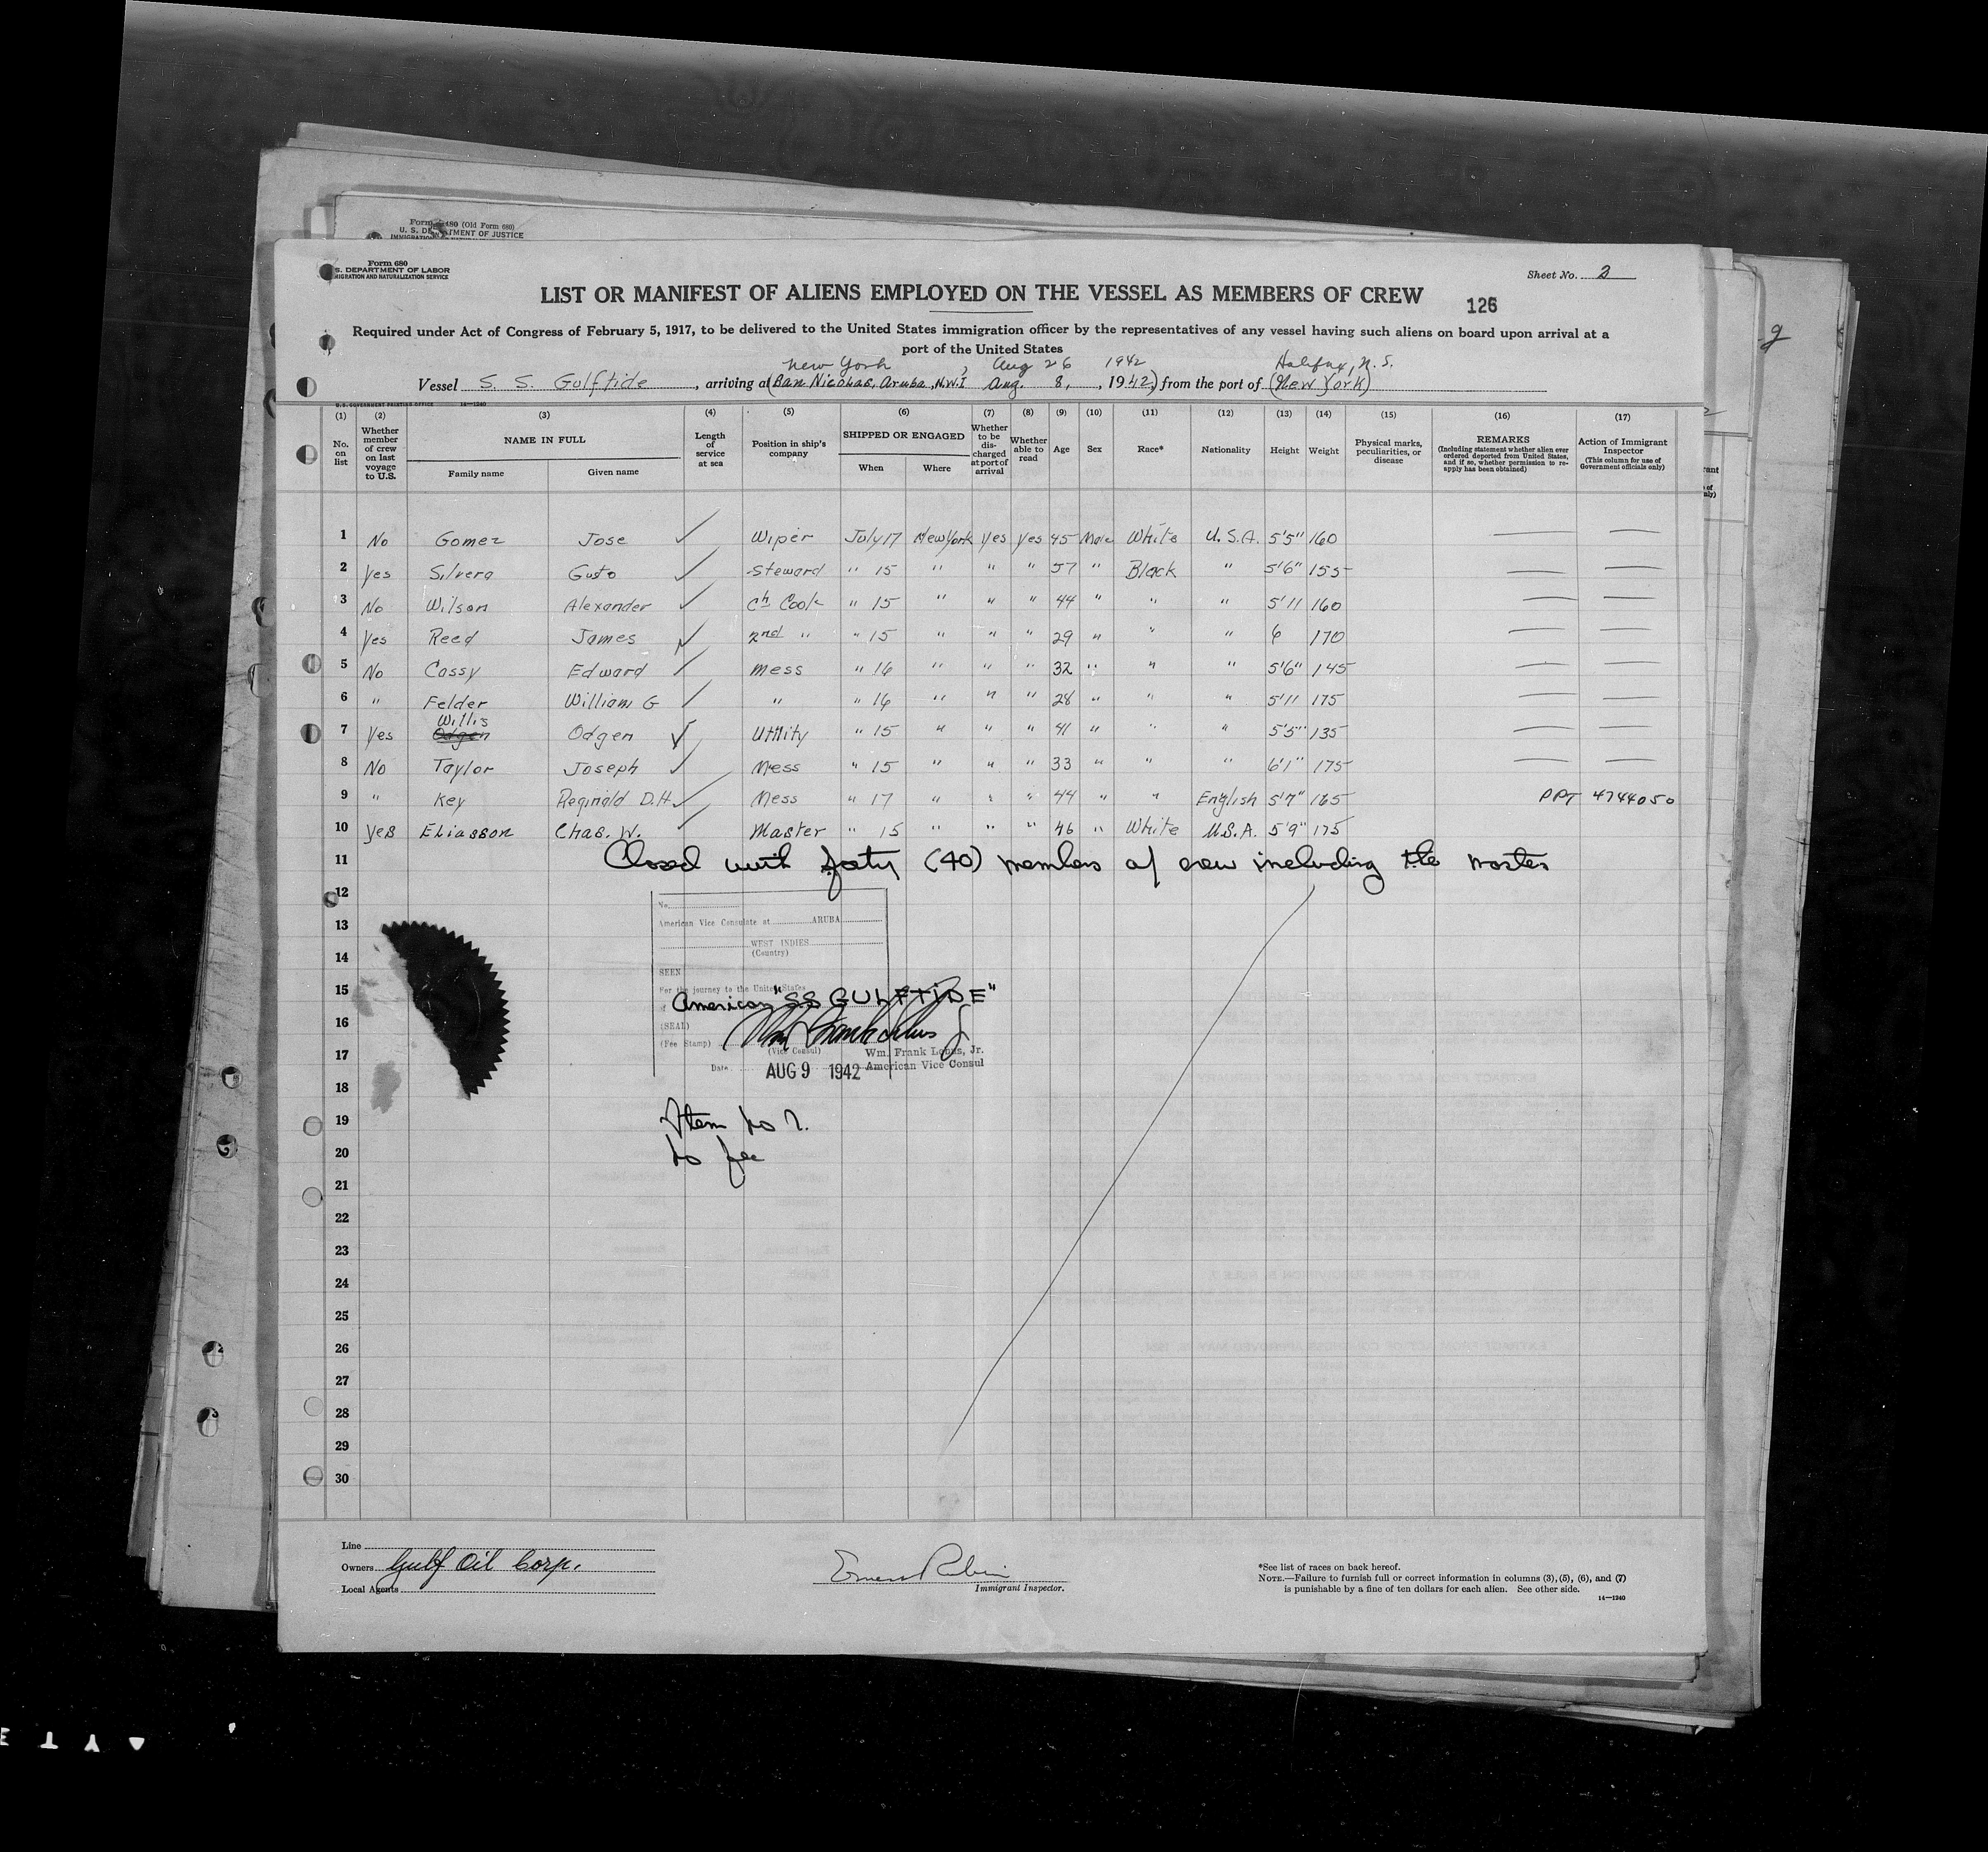 Form 480 (Old Form 680)
U. S. DEPARTMENT OF JUSTICE
Form 680
S. DEPARTMENT OF LABOR
MIGRATION AND NATURALIZATION SERVICE
Sheet No. 2
LIST OR MANIFEST OF ALIENS EMPLOYED ON THE VESSEL AS MEMBERS OF CREW
126
Required under Act of Congress of February 5, 1917, to be delivered to the United States immigration officer by the representatives of any vessel having such aliens on board upon arrival at a
port of the United States
New York, Aug 26 1942 Halifax, N.S.
Vessel S. S. Gulftide, arriving at (San Nicolas, Aruba, N.W.I Aug. 8, 1942,) from the port of (New York)
U.S. GOVERNMENT PRINTING OFFICE 14—1240
(1) (2) (3) (4) (5) (6) (7) (8) (9) (10) (11) (12) (13) (14) (15) (16) (17)
No. on list Whether member of crew on last voyage to U.S. NAME IN FULL Family name Given name Length of service at sea Position in ship's company SHIPPED OR ENGAGED When Where Whether to be discharged at port of arrival Whether able to read Age Sex Race* Nationality Height Weight Physical marks, peculiarities, or disease REMARKS (Including statement whether alien ever ordered deported from United States, and if so, whether permission to reapply has been obtained) Action of Immigrant Inspector (This column for use of Government officials only)
1 No Gomez Jose ✓ Wiper July 17 New York Yes Yes 45 Male White U.S.A. 5'5" 160 — —
2 Yes Silvera Gusto ✓ Steward " 15 " " " 57 " Black " 5'6" 155 — —
3 No Wilson Alexander ✓ Ch Cook " 15 " " " 44 " " " 5'11 160 — —
4 Yes Reed James ✓ 2nd " " 15 " " " 29 " " " 6 170 — —
5 No Cassy Edward ✓ Mess " 16 " " " 32 " " " 5'6" 145 — —
6 " Felder William G ✓ " " 16 " " " 28 " " " 5'11 175 — —
Willis
7 Yes Odgen Odgen ✓ Utility " 15 " " " 41 " " " 5'5" 135 — —
8 No Taylor Joseph ✓ Mess " 15 " " " 33 " " " 6'1" 175 — —
9 " Key Reginald D.H. ✓ Mess " 17 " " " 44 " " English 5'7" 165 PPT 4744050
10 Yes Eliasson Chas. W. ✓ Master " 15 " " " 46 " White U.S.A. 5'9" 175
11 Closed with forty (40) members of crew including the master
12
No.
13 American Vice Consulate at ARUBA
WEST INDIES
14 (Country)
SEEN
15 For the journey to the United States
American "SS GULFTIDE"
16 (SEAL)
(Fee Stamp)
17 (Vice Consul) Wm. Frank Lebus, Jr.
Date AUG 9 1942 American Vice Consul
18
19 Item no 7.
20 no fee
21
22
23
24
25
26
27
28
29
30
Line
Owners Gulf Oil Corp.
Local Agents
Immigrant Inspector.
*See list of races on back hereof.
NOTE.—Failure to furnish full or correct information in columns (3), (5), (6), and (7)
is punishable by a fine of ten dollars for each alien. See other side.
14—1240